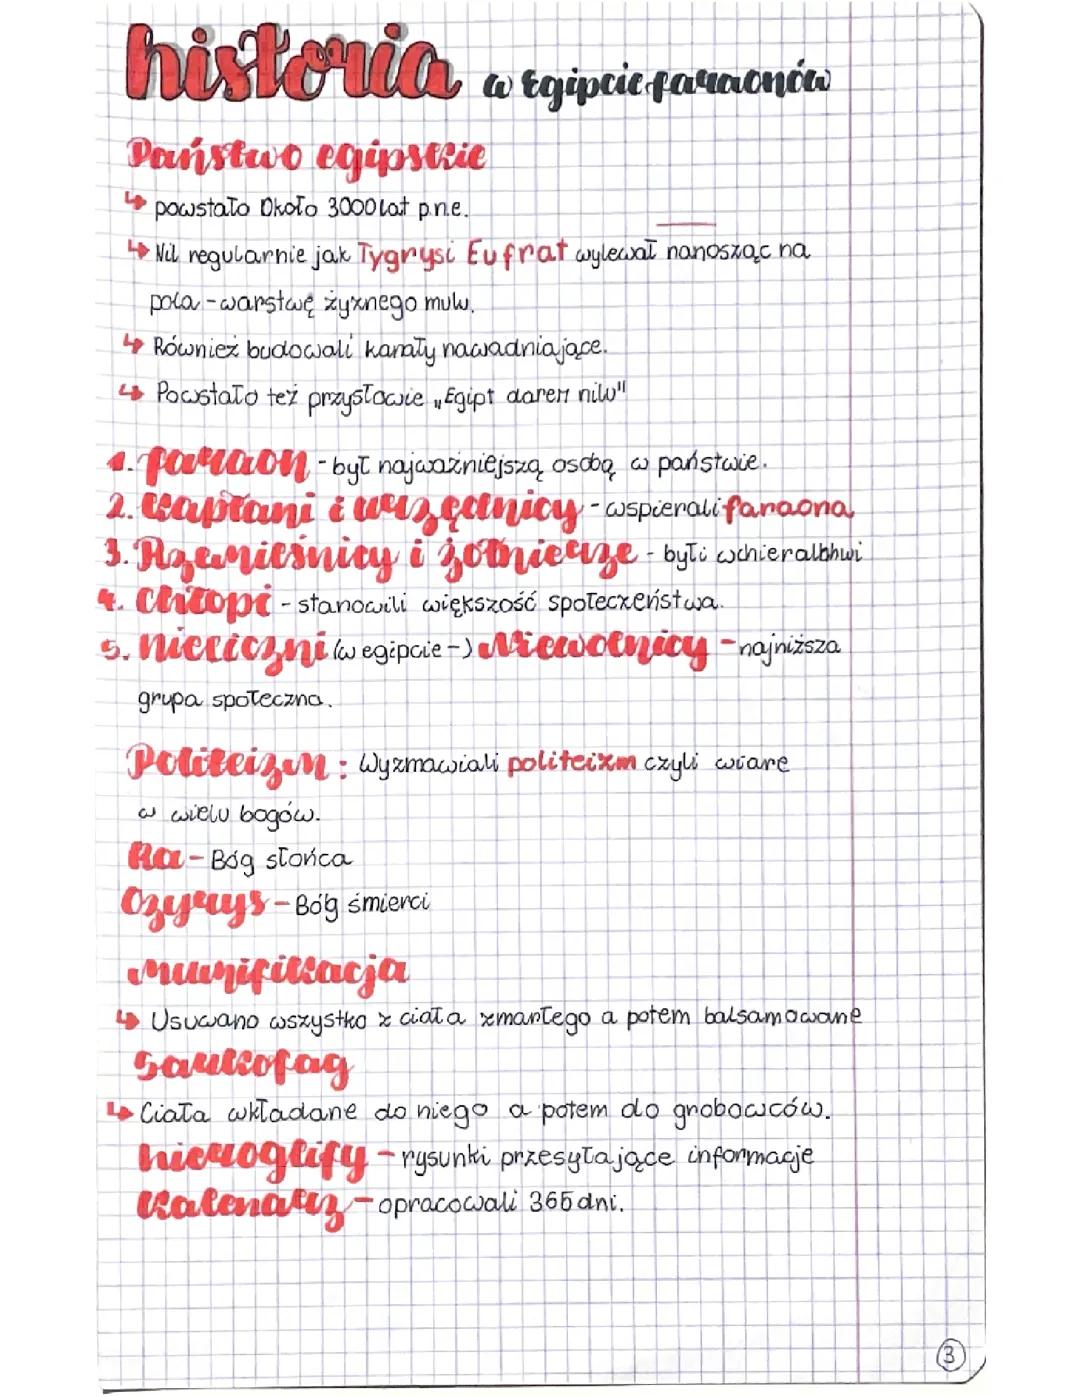 historia w Egipcie faraonów
Państwo egipskie
↳ powstało Około 3000 lat p.n.e.
↳ Nil regularnie jak Tygrys i Eufrat wylewał nanosząc na
pola - warstwę żyznego mułu.
↳ Również budowali kanały nawadniające.
↳ Powstało też przysłowie „Egipt darem nilu"
1. faraon - był najważniejszą osobą w państwie.
2. kapłani i urzędnicy - wspierali faraona
3. Rzemieślnicy i żołnierze - byli w
4. chłopi - stanowili większość społeczeństwa.
5. nieliczni (w egipcie -) Niewolnicy - najniższa
grupa społeczna.
Politeizm : Wyzmawiali politeizm czyli wiarę
w wielu bogów.
Ra - Bóg słońca
Ozyrys - Bóg śmierci
mumifikacja
↳ Usuwano wszystko z ciała zmarłego a potem balsamowane
Sarkofag
↳ Ciała wkładane do niego a potem do grobowców.
hieroglify - rysunki przesyłające informacje
Kalendarz - opracowali 365 dni.
3